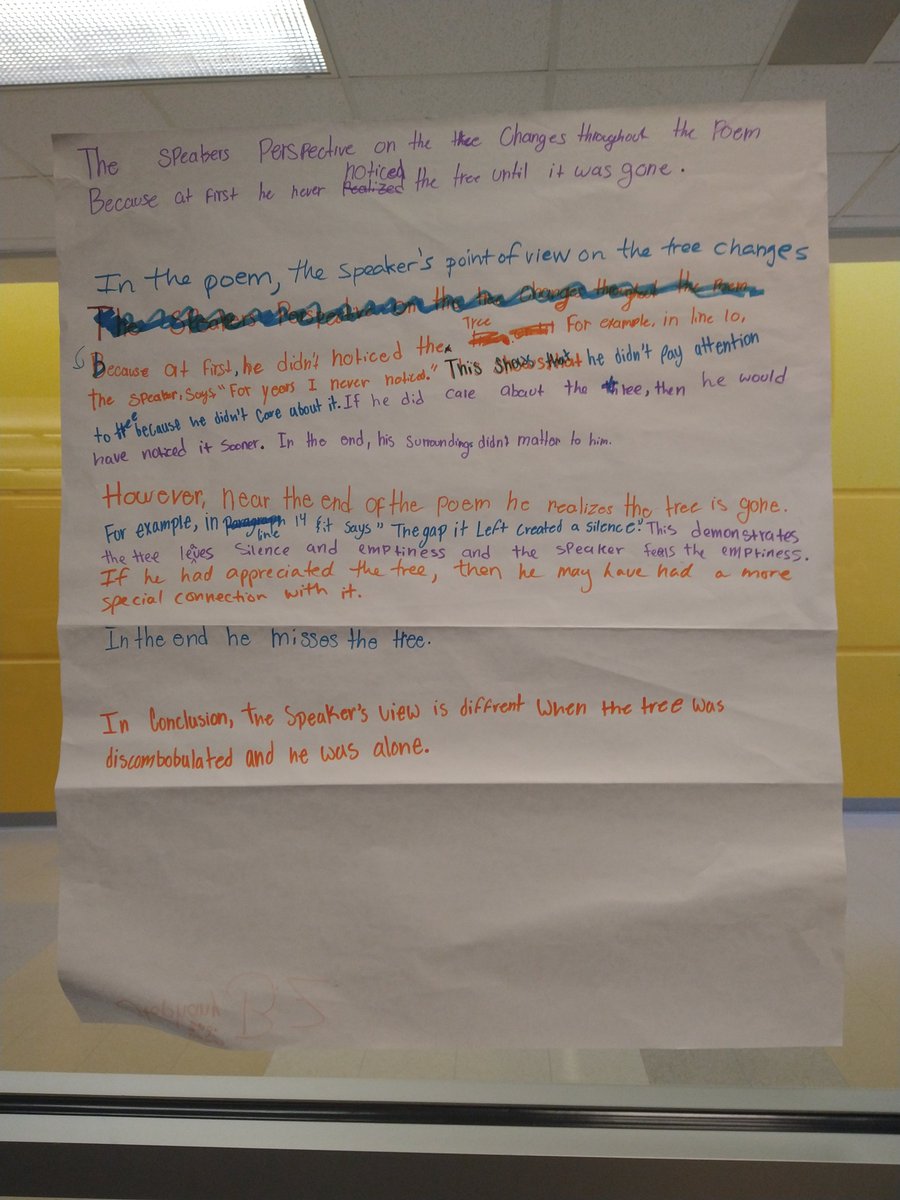 The Speakers Perspective on the tree Changes throughout the Poem
Because at first he never Realized noticed the tree until it was gone.
In the poem, the speaker's point of view on the tree changes
The Speakers Perspective on the tree Changes throughout the Poem
Because at first, he didn't noticed the Tree For example, in line 10,
the speaker, says "For years I never noticed." This shows that he didn't pay attention
to tree because he didn't care about it. If he did care about the tree, then he would
have noticed it sooner. In the end, his surroundings didn't matter to him.
However, near the end of the poem he realizes the tree is gone.
For example, in Paragraph line 14 it says " The gap it Left created a silence". This demonstrates
the tree leaves silence and emptiness and the speaker feels the emptiness.
If he had appreciated the tree, then he may have had a more
special connection with it.
In the end he misses the tree.
In Conclusion, the Speaker's view is diffrent when the tree was
discombobulated and he was alone.